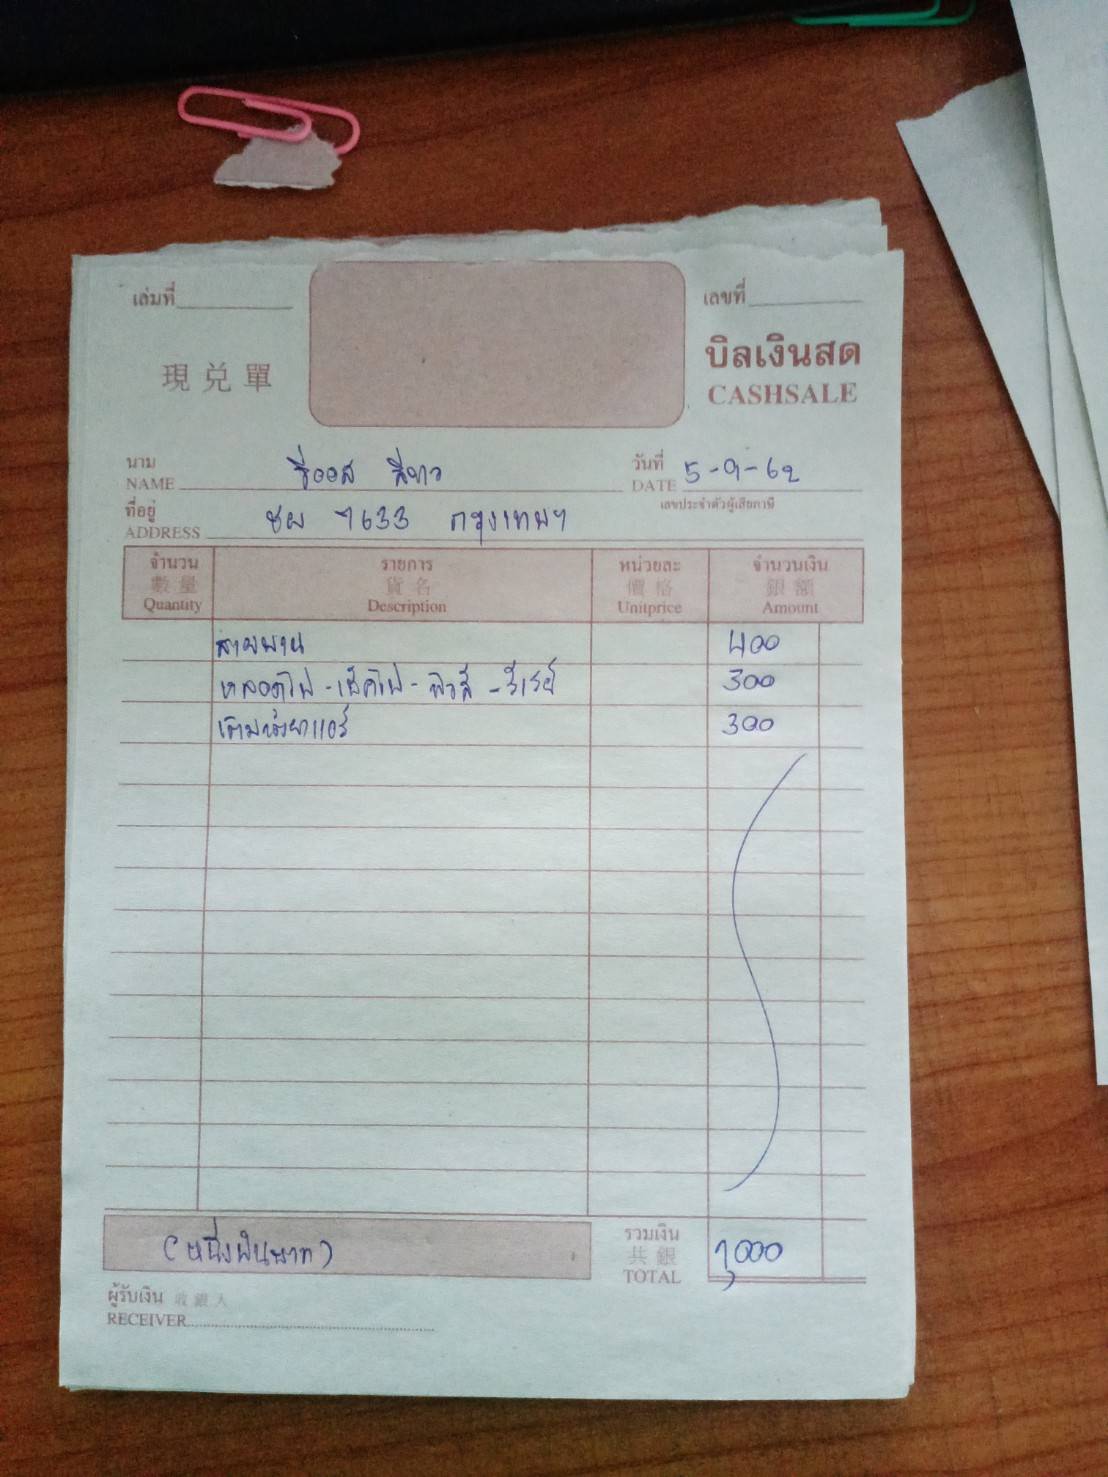 เล่มที่ เลขที่
現兑單 บิลเงินสด
CASHSALE
นาม ซีออส สีขาว วันที่ 5-9-62
NAME DATE
ที่อยู่ ชผ 7633 กรุงเทพฯ เลขประจำตัวผู้เสียภาษี
ADDRESS
จำนวน รายการ หน่วยละ จำนวนเงิน
數量 貨名 價格 銀額
Quantity Description Unitprice Amount
สายพาน 400
หลอดไฟ - เช็คไฟ - ฟิวส์ - รีเรย์ 300
เติมน้ำยาแอร์ 300
(หนึ่งพันบาท) รวมเงิน 1,000
共銀
TOTAL
ผู้รับเงิน 收銀人
RECEIVER